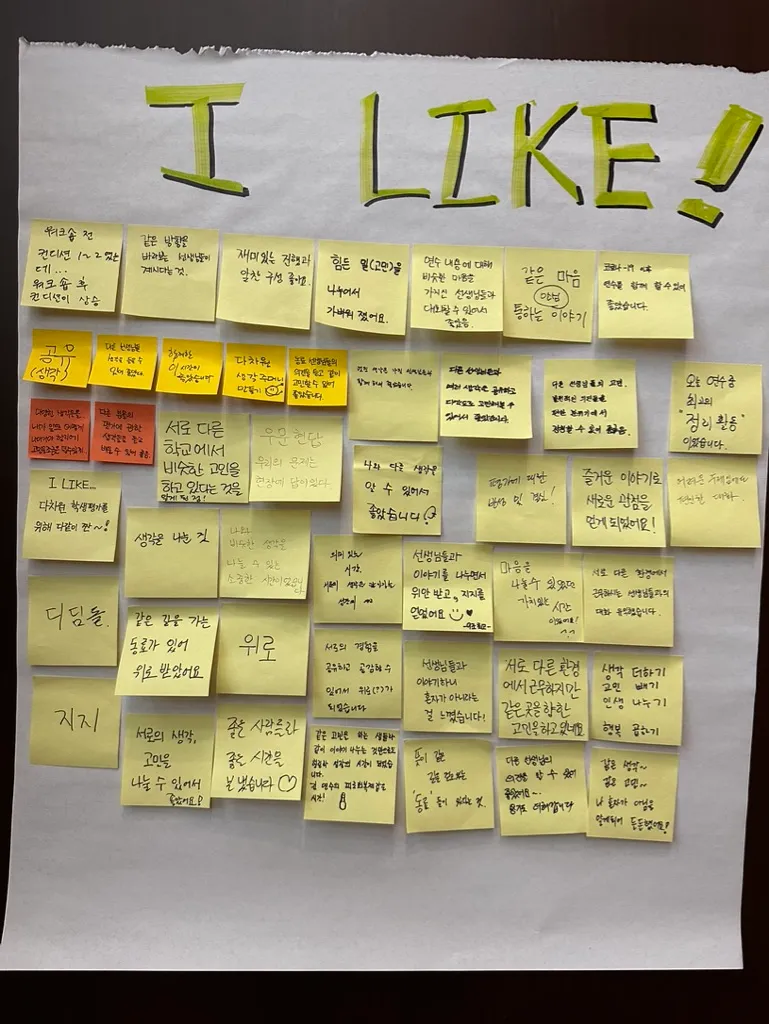 I LIKE!
워크숍 전
컨디션 1~2 였는
데...
워크숍 후
컨디션이 상승
같은 방향을
바라보는 선생님들이
계시다는 것.
재미있는 진행과
알찬 구성 좋아요.
힘든 일(고민)을
나누어서
가벼워 졌어요.
연수 내용에 대해
비슷한 마음을
가지신 선생님들과
대화할 수 있어서
좋았음.
같은 마음
만남
통하는 이야기
코로나-19 이후
연수를 함께 할 수 있어
좋았습니다.
공유
(생각)
다른 선생님들
있어 좋았다
시간이
좋았습니다
다차원
생각 주머니
만들기
동료 선생님들의
의견을 듣고 같이
고민할 수 있어
좋았습니다.
다른 선생님들과
여러 생각을 공유하고
다각도로 고민해볼 수
있어서 좋았습니다.
다른 선생님들의 고민,
편안한 분위기에서
경청할 수 있어 좋았음.
오늘 연수중
최고의
"정리 활동"
이었습니다.
서로 다른
학교에서
비슷한 고민을
하고 있다는 것을
알게 된 점!
우문현답
우리의 문제는
현장에 답이있다.
나와 다른 생각을
알 수 있어서
좋았습니다!
평가에 대한
반성 및 결심!
즐거운 이야기로
새로운 관점을
얻게 되었어요!
I LIKE...
다차원 학생평가를
위해 다같이 한~!
생각을 나눈 것
나와
비슷한 생각을
나눌 수 있는
소중한 시간이었습니다
의미 있는
시간,
선생님들과
이야기를 나누면서
위안 받고, 지지를
얻었어요
마음을
나눌 수 있었던
가치있는 시간
이었어요!
^^
서로 다른 환경에서
근무하시는 선생님들과의
대화 유익했습니다.
디딤돌.
같은 길을 가는
동료가 있어
위로 받았어요
위로
서로의 경험을
공유하고 공감할 수
있어서 위로(?)가
되었습니다
선생님들과
이야기하니
혼자가 아니라는
걸 느꼈습니다!
서로 다른 환경
에서 근무하지만
같은 곳을 향한
고민을 하고 있네요
생각 더하기
고민 빼기
인생 나누기
행복 곱하기
지지
서로의 생각,
고민을
나눌 수 있어서
좋았어요!
좋은 사람들과
좋은 시간을
보냈습니다
같은 고민을 하는 샘들과
같이 이야기 나누는 것만으로도
힐링과 성장의 시간이 되었습니다.
시간!
뜻이 같은
길을 걷고 있는
'동료'들이 있다는 것.
다른 선생님의
의견을 알 수 있어
좋았어요~.
같은 생각~
같은 고민~
나 혼자가 아님을
알게되어 든든했어요!